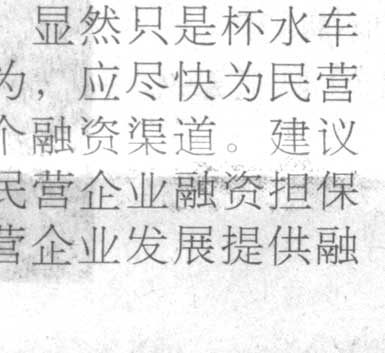 显然只是杯水车
为，应尽快为民营
个融资渠道。建议
民营企业融资担保
营企业发展提供融